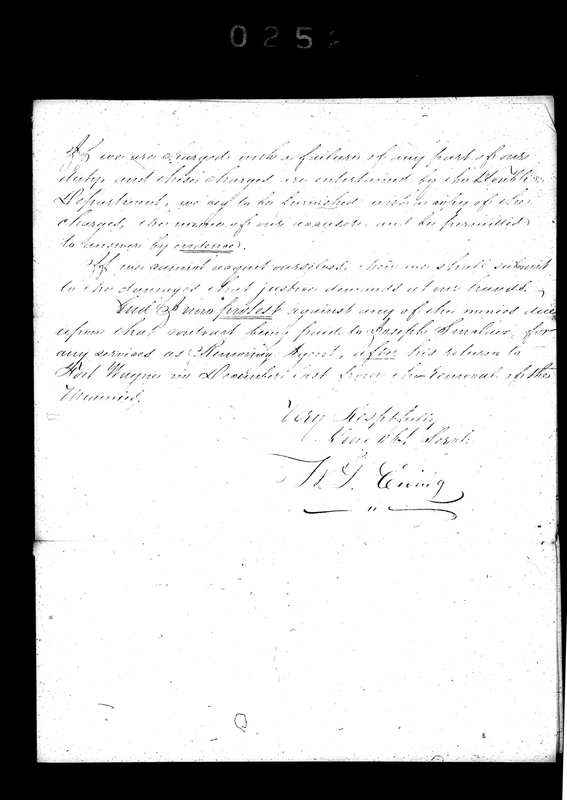 025
If we are charged with a failure of any part of our
duty, and these charges are entertained by the Honble
Department, we beg to be furnished with a copy of the
charges, the name of our accuser and be permitted
to answer by evidence.
If we cannot acquit ourselves, then we shall submit
to the damages that justice demands at our hands.
And I now protest against any of the monies due
upon that contract being paid to Joseph Sinclair, for
any services as Removing Agent, after his return to
Fort Wayne in December last from the removal of the
Miamies,
Very Respectfully
Your Obt Servt
W. G. Ewing